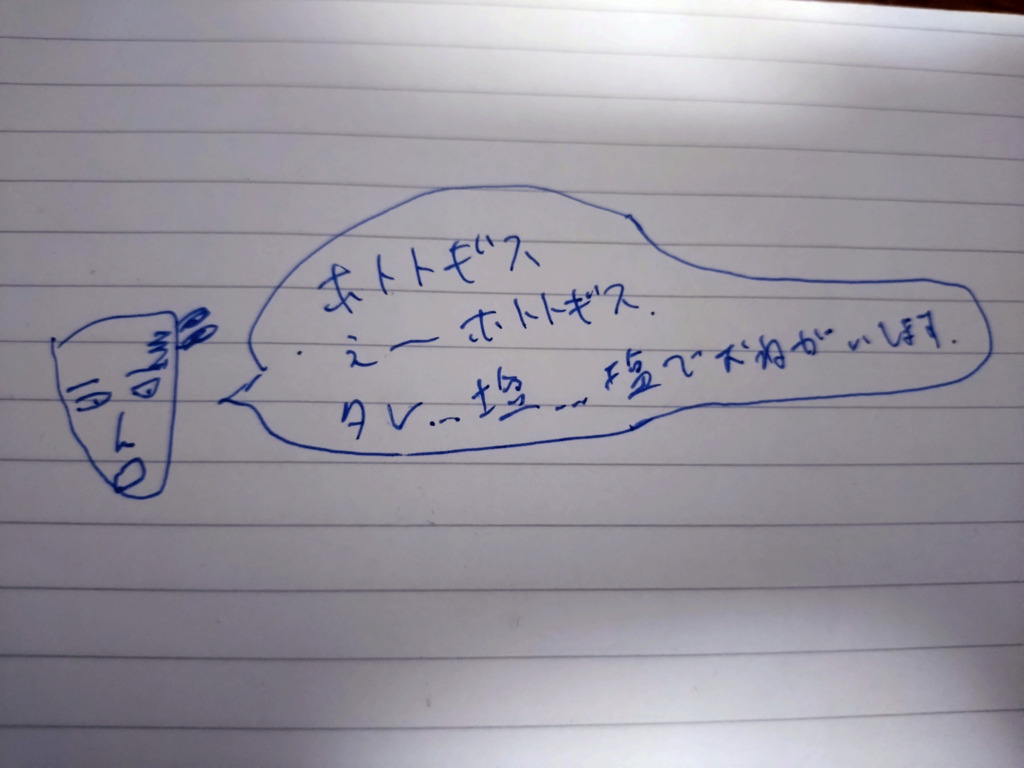 ホトトギス
えーホトトギス.
タレ…塩…塩でおねがいします.